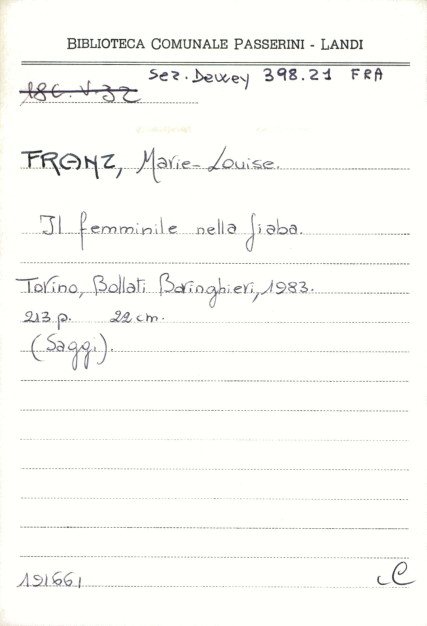 BIBLIOTECA COMUNALE PASSERINI - LANDI
Sez. Dewey 398.21 FRA
186. V. 32
FRANZ, Marie-Louise.
Il femminile nella fiaba.
Torino, Bollati Boringhieri, 1983.
213 p. 22 cm.
(Saggi).
191661
C